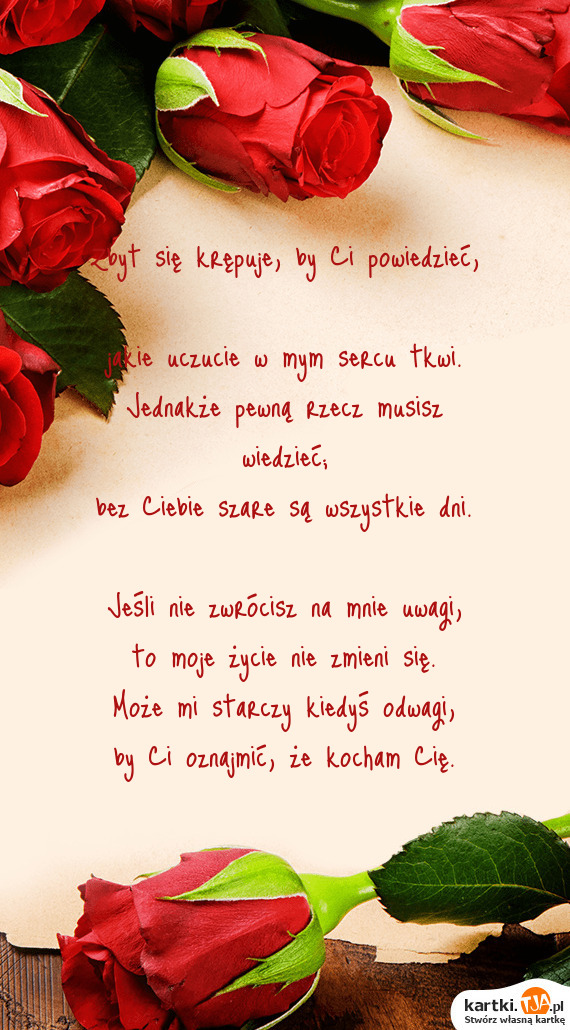 Zbyt się krępuje, by Ci powiedzieć,
jakie uczucie w mym sercu tkwi.
Jednakże pewną rzecz musisz
wiedzieć;
bez Ciebie szare są wszystkie dni.
Jeśli nie zwrócisz na mnie uwagi,
to moje życie nie zmieni się.
Może mi starczy kiedyś odwagi,
by Ci oznajmić, że kocham Cię.
kartki.TJA.pl
Stwórz własną kartkę